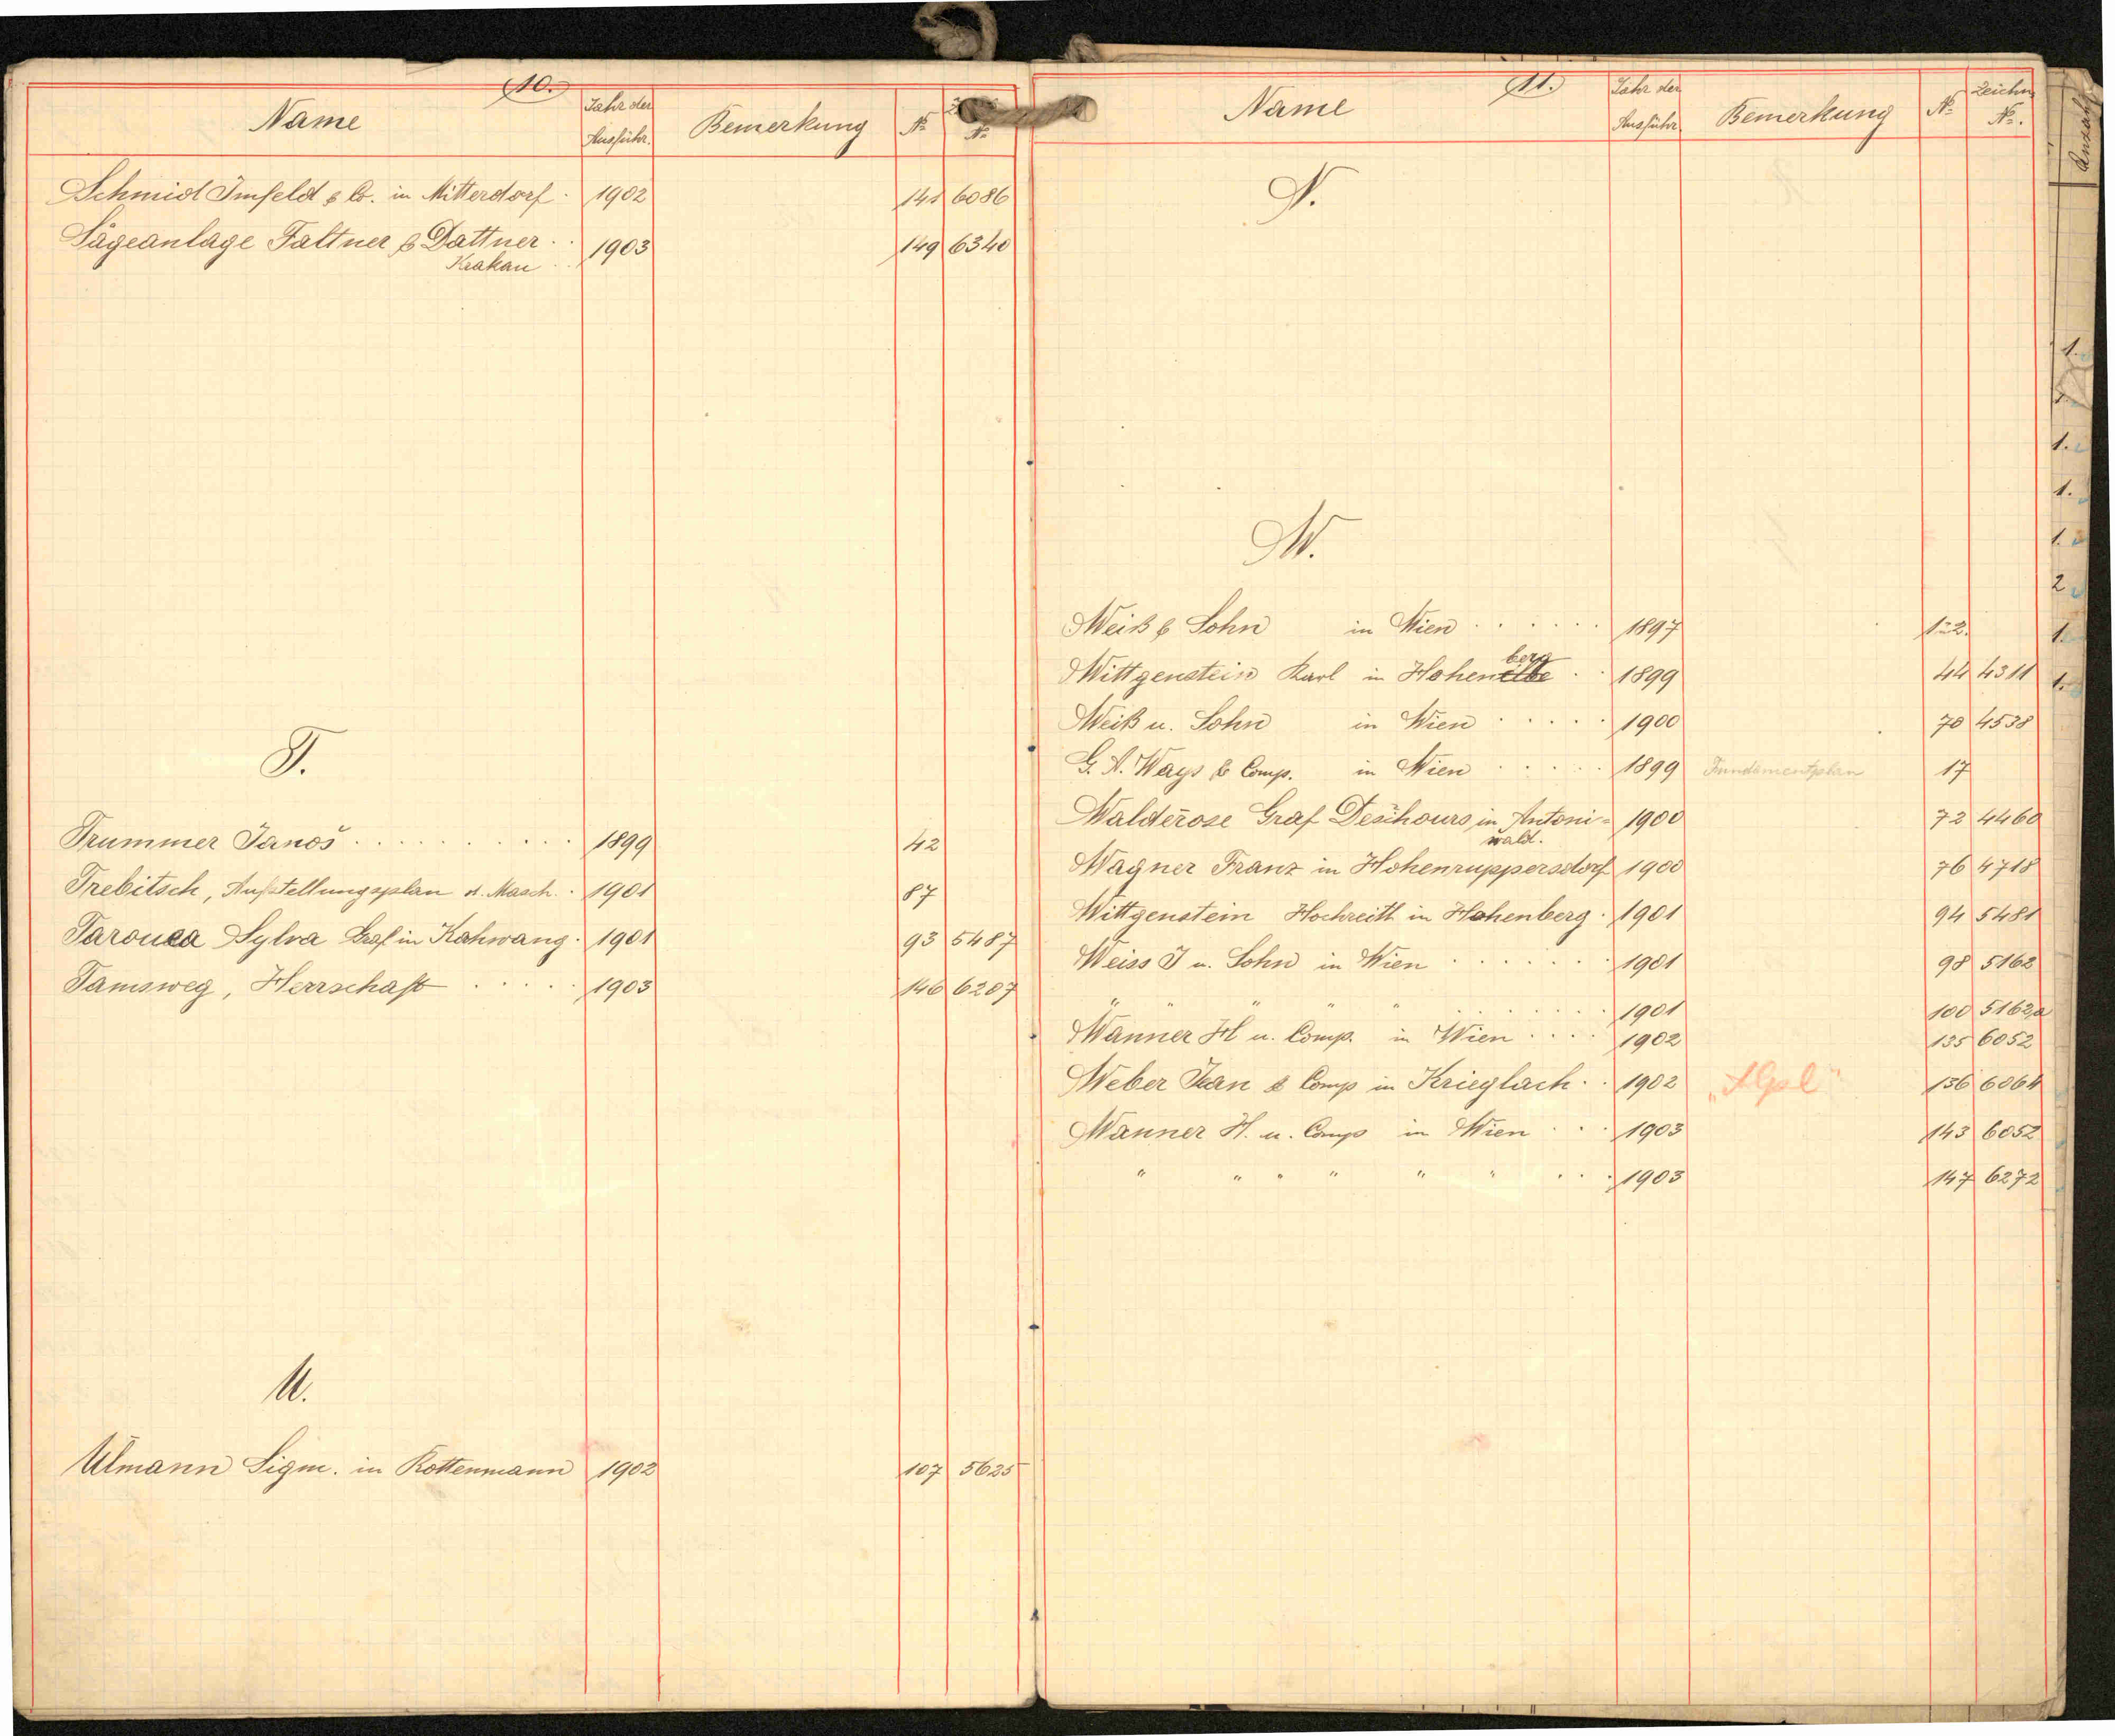 10.
Name Jahr der Ausführ. Bemerkung № №
Schmid Imfeld & Co. in Mitterdorf . 1902 141 6086
Sägeanlage Faltner & Dattner . . 1903 149 6340
Krakau . .
T.
Trummer Janoš . . . . . . . . . . 1899 42
Trebitsch, Aufstellungsplan d. Masch. . 1901 87
Tarouca Sylva Graf in Kahwang . 1901 93 5487
Tamsweg, Herrschaft . . . . . 1903 146 6207
U.
Ulmann Sigm. in Rottenmann 1902 107 5625
11.
Name Jahr der Ausführ Bemerkung № Zeichn №.
V.
W.
Weiß & Sohn in Wien . . . . . . 1897 1u2.
berg
Wittgenstein Karl in Hohenelbe . . 1899 44 4311
Weiß u. Sohn in Wien . . . . . 1900 70 4538
G. A. Ways & Comp. in Wien . . . . . 1899 Fundamentplan 17
Walderose Graf Deschours in Antoni= 1900 72 4460
wald.
Wagner Franz in Hohenruppersdorf 1900 76 4718
Wittgenstein Hochreith in Hohenberg . 1901 94 5481
Weiss J u. Sohn in Wien . . . . . . . 1901 98 5162
" " " " " . . . . . . . 1901 100 5162a
Wanner H u. Comp. in Wien . . . . 1902 135 6052
Weber Jean & Comp in Krieglach . . 1902 136 6064
Wanner H. u. Comp in Wien . . . 1903 143 6052
" " " " " " . . . 1903 147 6272
Anzahl
1.
1.
1.
1.
2
1.
1.